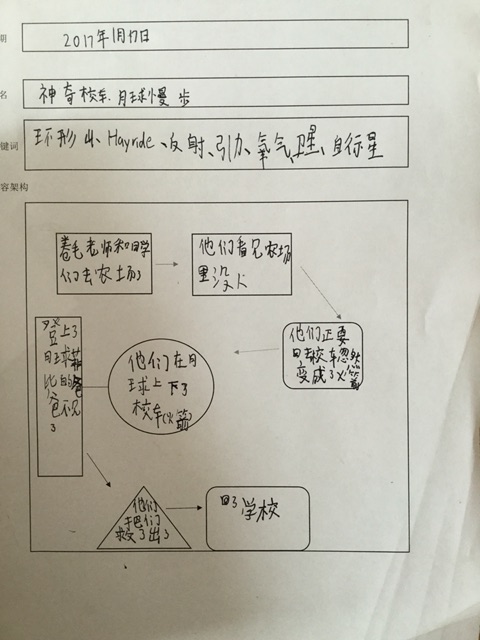 期
2017年1月17日
名
神奇校车.月球慢步
键词
环形山、Hayride、反射、引力、氧气、卫星、自行星
容架构
卷毛老师和同学
们去农场了
他们看见农场
里没人
他们正要
回去校车忽然
变成了火箭
他们在月
球上下了
校车(火箭)
登上了
月球菲
比的爸
爸不见
了
他们
救了出了
回了学校